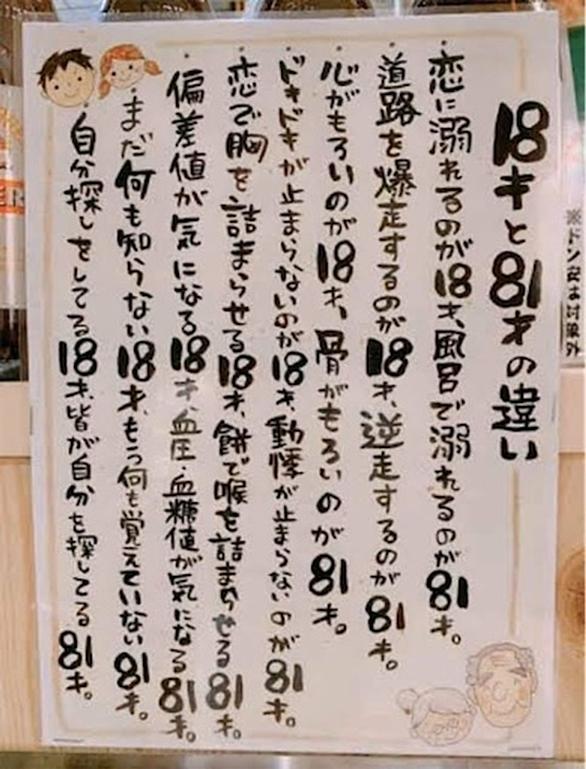 18才と81才の違い
恋に溺れるのが18才、風呂で溺れるのが81才。
道路を爆走するのが18才、逆走するのが81才。
心がもろいのが18才、骨がもろいのが81才。
ドキドキが止まらないのが18才、動悸が止まらないのが81才。
恋で胸を詰まらせる18才、餅で喉を詰まらせる81才。
偏差値が気になる18才、血圧・血糖値が気になる81才。
まだ何も知らない18才、もう何も覚えていない81才。
自分探しをしてる18才、皆が自分を探してる81才。
は対象外